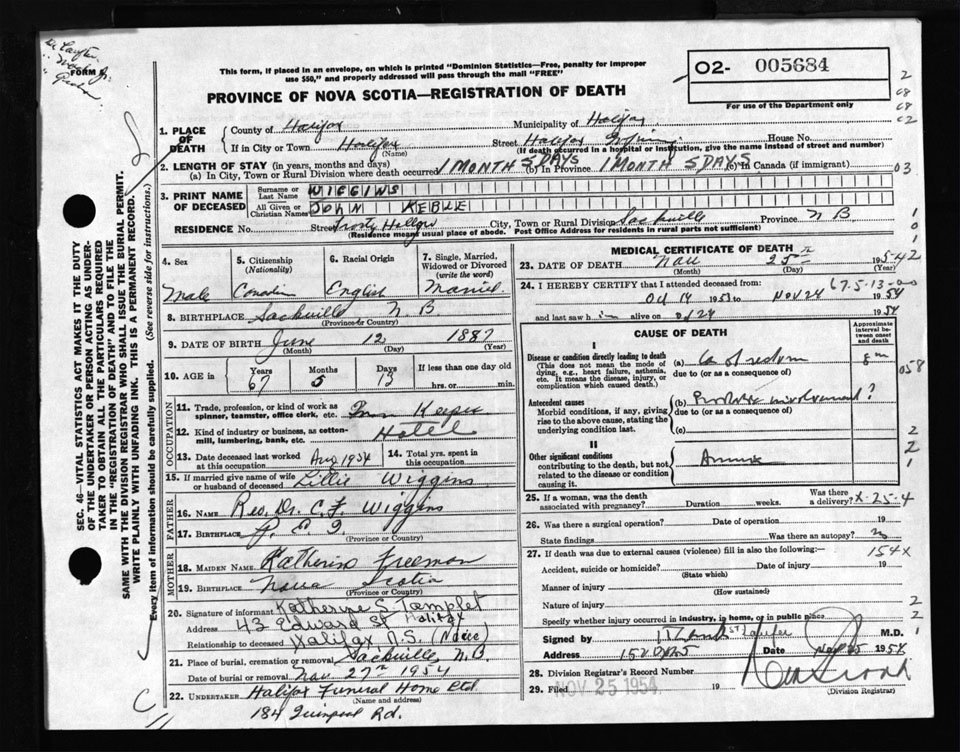 FORM
This form, if placed in an envelope, on which is printed "Dominion Statistics—Free, penalty for improper
use $50," and properly addressed will pass through the mail "FREE"
O2- 005684
For use of the Department only
PROVINCE OF NOVA SCOTIA—REGISTRATION OF DEATH
1. PLACE OF DEATH
County of Halifax Municipality of Halifax
If in City or Town Halifax (Name) Street Halifax Infirmary House No.
(If death occurred in a hospital or institution, give the name instead of street and number)
2. LENGTH OF STAY (in years, months and days)
(a) In City, Town or Rural Division where death occurred 1 MONTH 5 DAYS (b) In Province 1 MONTH 5 DAYS (c) In Canada (if immigrant)
3. PRINT NAME OF DECEASED
Surname or Last Name WIGGINS
All Given or Christian Names JOHN KEBLE
RESIDENCE No. Street Frosty Hollow City, Town or Rural Division Sackville Province N B
(Residence means usual place of abode. Post Office Address for residents in rural parts not sufficient)
4. Sex Male
5. Citizenship (Nationality) Canadian
6. Racial Origin English
7. Single, Married, Widowed or Divorced (write the word) Married
8. BIRTHPLACE Sackville N B
(Province or Country)
9. DATE OF BIRTH June 12 1887
(Month) (Day) (Year)
10. AGE Years 67 Months 5 Days 13 If less than one day old hrs. or min.
OCCUPATION
11. Trade, profession, or kind of work as spinner, teamster, office clerk, etc. Inn Keeper
12. Kind of industry or business, as cotton-mill, lumbering, bank, etc. Hotel
13. Date deceased last worked at this occupation Aug 1954
14. Total yrs. spent in this occupation
15. If married give name of wife or husband of deceased Lillie Wiggins
FATHER
16. NAME Rev. Dr. C.F. Wiggins
17. BIRTHPLACE P. E. I.
(Province or Country)
MOTHER
18. MAIDEN NAME Katherine Freeman
19. BIRTHPLACE Nova Scotia
(Province or Country)
20. Signature of informant Katheryne S. Templet
Address 43 Edward St Halifax
Relationship to deceased Halifax N.S. (Niece)
21. Place of burial, cremation or removal Sackville N.B.
Date of burial or removal Nov 27th 1954
22. UNDERTAKER Halifax Funeral Home Ltd.
(Name and address)
184 Quinpool Rd.
MEDICAL CERTIFICATE OF DEATH
23. DATE OF DEATH Nov 25th 1954
(Month) (Day) (Year)
24. I HEREBY CERTIFY that I attended deceased from 67-5-13-00
Oct 19 1953 to NOV 24 1954
and last saw him alive on 1954
CAUSE OF DEATH
Approximate interval between onset and death
I
Disease or condition directly leading to death
(This does not mean the mode of dying, e.g., heart failure, asthenia, etc. It means the disease, injury, or complication which caused death.)
(a) Ca of rectum
due to (or as a consequence of)
Antecedent causes
Morbid conditions, if any, giving rise to the above cause, stating the underlying condition last.
(b) involvement ?
due to (or as a consequence of)
(c)
II
Other significant conditions
contributing to the death, but not related to the disease or condition causing it.
25. If a woman, was the death associated with pregnancy? Duration weeks. Was there a delivery? X-25-4
26. Was there a surgical operation? Date of operation 19
State findings Was there an autopsy? no
27. If death was due to external causes (violence) fill in also the following:— 154X
Accident, suicide or homicide? Date of injury 19
(State which)
Manner of injury
(How sustained)
Nature of injury
Specify whether injury occurred in industry, in home, or in public place
Signed by M.D.
Address Nov 25 1954
28. Division Registrar's Record Number
29. Filed NOV 25 1954 19
(Division Registrar)
SEC. 46—VITAL STATISTICS ACT MAKES IT THE DUTY
OF THE UNDERTAKER OR PERSON ACTING AS UNDER-
TAKER TO OBTAIN ALL THE PARTICULARS REQUIRED
IN THE "REGISTRATION OF DEATH" AND TO FILE THE
SAME WITH THE DIVISION REGISTRAR WHO SHALL ISSUE THE BURIAL PERMIT.
WRITE PLAINLY WITH UNFADING INK. THIS IS A PERMANENT RECORD.
Every item of information should be carefully supplied. (See reverse side for instructions.)
2
C8
C8
C2
03
1
0
1
2
058
2
2
1
2
2
1